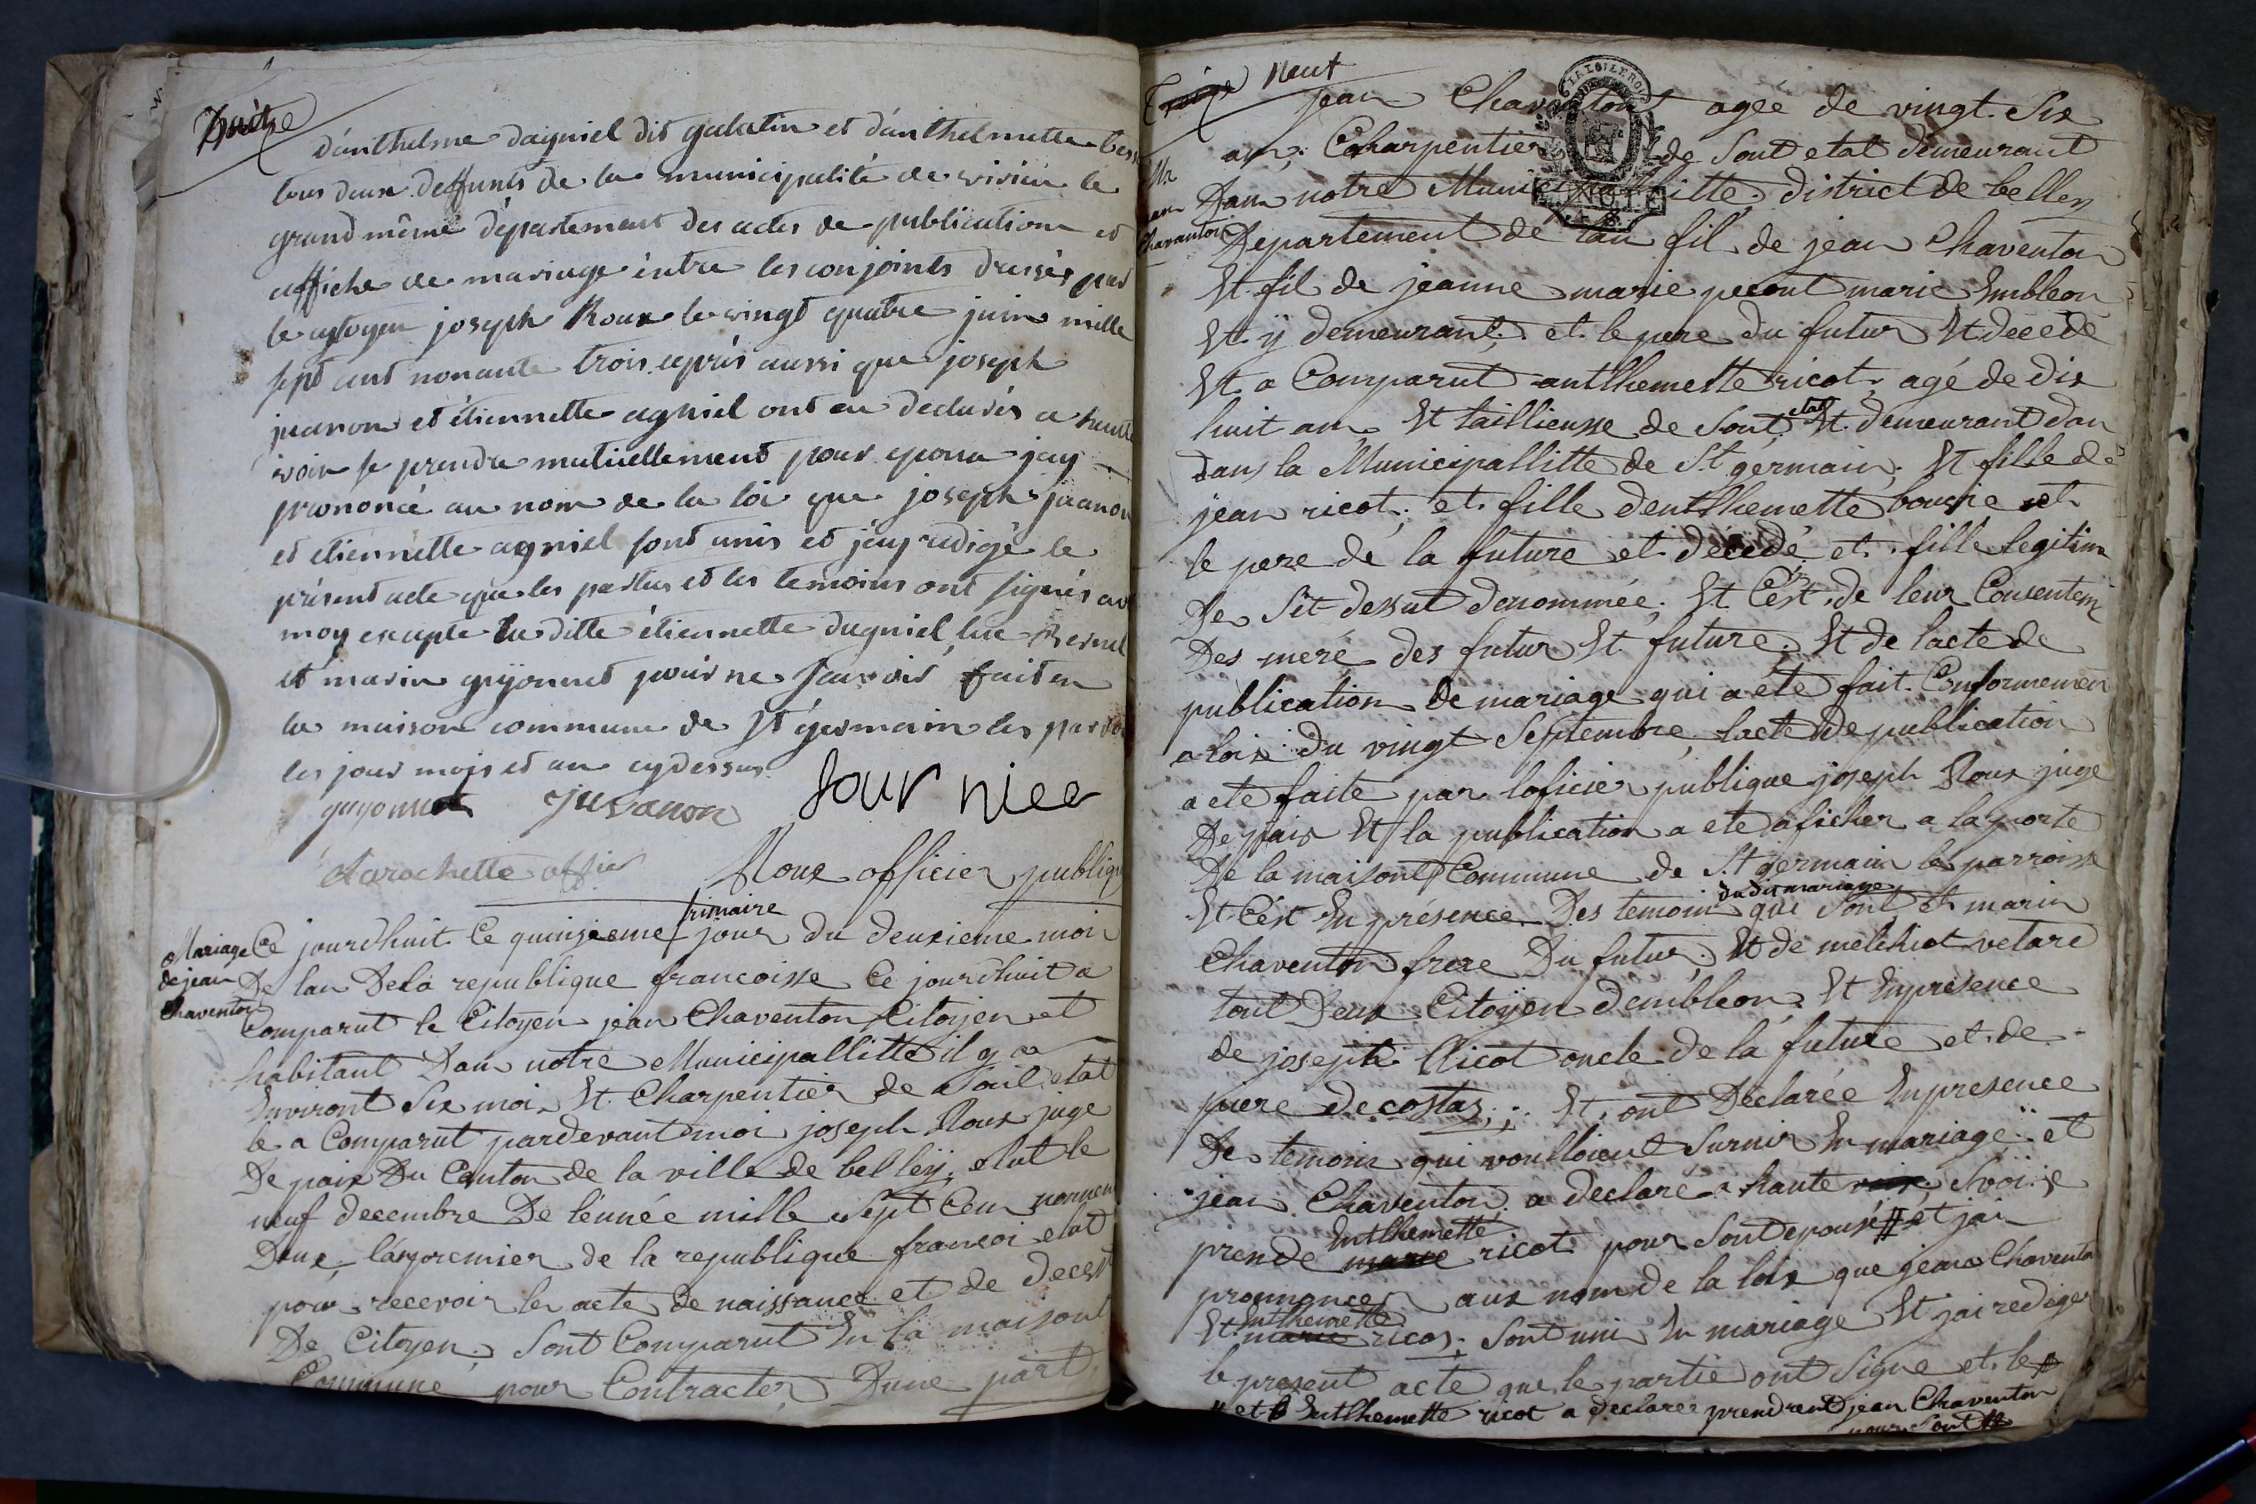 huit
d'anthelme dagniel dit galatin et d'anthelmette
tous deux deffunts de la municipalité de virieu le
grand même département des actes de publication et
affiche de mariage entre les conjoints dressés par
le citoyen joseph Roux le vingt quatre juin mille
sept cent nonante trois après aussi que joseph
juanon et étiennette agniel ont eu declarés a haute
voix se prendre mutuellement pour epoux jay
prononcé au nom de la loi que joseph juanon
et etiennette agniel sont unis et j'ay redigé le
présent acte que les parties et les temoins ont signés avec
moy excepte la ditte étiennette dagniel, luc
et marin guÿonnet pour ne scavoir, fait en
la maison commune de St germain les paroi
les jour mois et an cydessus
guyonnet Juvanon fournier
Larochette offier Roux officier publique
Mariage de jean Chaventon
Ce jourdhuit Ce quinzieme jour du deuxieme moi
frimaire
De lan Dela republique francoisse Ce jourdhuit a
Comparut le Citoyen jean Chaventon Citoyen et
habitant Dan notre Municipallitte il y a
Environt Six moi, Et Charpentier de Soit etat
le a Comparut pardevant moi joseph Roux juge
De paix Du Canton de la ville de belleÿ, elut le
neuf decembre De lénnée mille Sept Cen nonnen
Deux, lanpremier de la republique francoi elut
pour recevoir les acte de naissance et de decest
De Citoyen, Sont Comparut En la maisont
Commune pour Contracter Dune part
neuf
jean Chaventont agée de vingt Six
an, Charpentier de Sont etat demeurant
Dan notre Municipallitte district de belley
Chavanton
Departement de lain fil de jean Chaventon
Et fil de jeanne marie pecont marie Embleon
Et ÿ demeurant, et le pere du futur Et décédé
Et a Comparut anthemette ricot, agé de dix
huit an Et taillieusse de Sont etat Et demeurant dan
dans la Municipallitte de St germain, Et fille de
jean ricot, et fille denthemette bouvie et
le pere de la future et décedé et fille legitim
De Sit dessut denommée, Et Cést de leur Consentem
Des meré des futur Et future, Et de lacte de
publication de mariage qui a été fait Conformemen
a loix du vingt Septembre, lacte De publication
a eté faite par loficier publique joseph Roux juge
De paix Et la publication a eté aficher a la porte
De la maisont Commune de St germain les parroisse
Et Cést En présence Des temoin du dit mariage qui Sont et marin
Chaventon frere Du futur, Et de melchiot vetare
tout Deux Citoÿen dembleon, Et Enprésence
de joseph Ricot oncle de la future et de
piere decostas; Et ont Declarée Enpresence
De temoin qui voulloient Sunir En mariage et
jean Chaventon a declaré a haute voix
prende Enthemette ricot pour Sont epousé et jai
prononcer aux nom de la loix que jean Chaventon
Et Enthemette ricot Sont uni En mariage Et jai rediger
le present acte que le partie ont Signe et le
et Enthemette ricot a declaree prendrent jean Chaventon
pour Sont